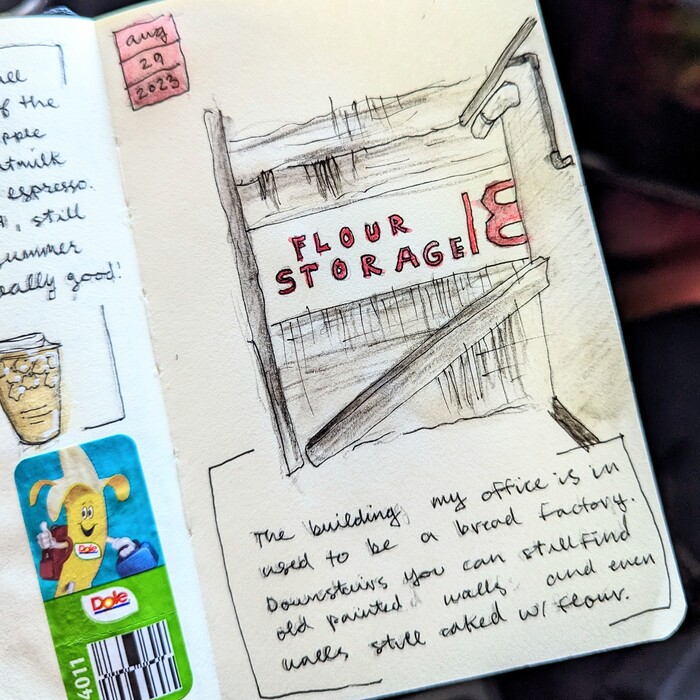 f the
espresso.
, still
summer
really good!
Dole
Dole
4011
aug
29
2023
FLOUR
STORAGE
The building my office is in
used to be a bread factory.
Downstairs you can still find
old painted walls and even
walls still caked w/ flour.